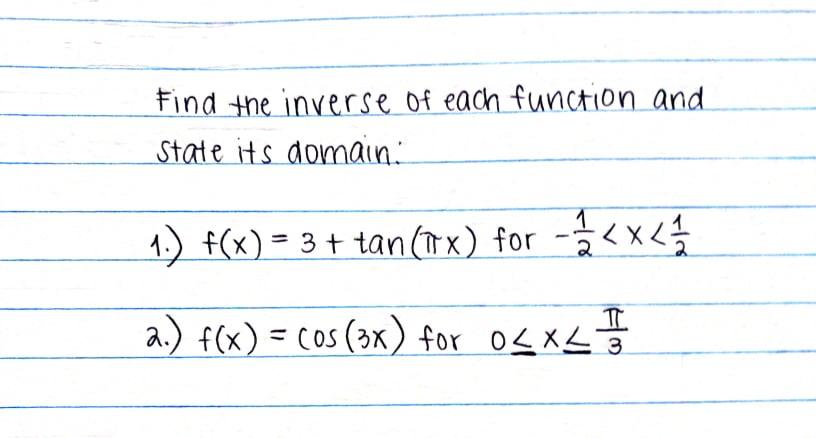 Find the inverse of each function and
state its domain:
1.) f(x) = 3 + tan(πx) for -1/2 < x < 1/2
2.) f(x) = cos(3x) for 0 ≤ x ≤ π/3